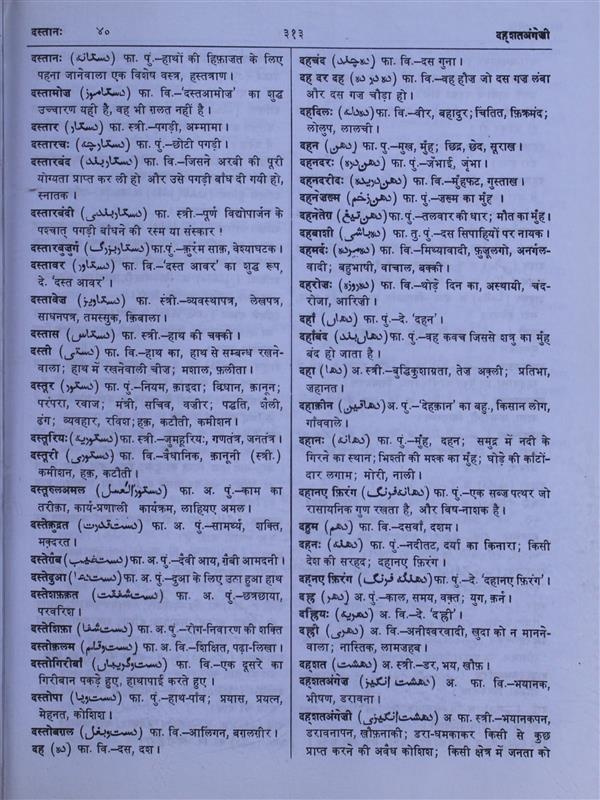 दस्तानः ४० ३१३ दह्शतअंगेज़ी
दस्तानः (دستانہ) फा. पुं.-हाथों की हिफ़ाजत के लिए
पहना जानेवाला एक विशेष वस्त्र, हस्तत्राण।
दस्तामोज़ (دستاموز) फा. वि.-'दस्तआमोज' का शुद्ध
उच्चारण यही है, वह भी ग़लत नहीं है।
दस्तार (دستار) फा. स्त्री.-पगड़ी, अम्मामा।
दस्तारचः (دستارچہ) फा. पुं.-छोटी पगड़ी।
दस्तारबंद (دستاربند) फा. वि.-जिसने अरबी की पूरी
योग्यता प्राप्त कर ली हो और उसे पगड़ी बाँध दी गयी हो,
स्नातक।
दस्तारबंदी (دستاربندی) फा. स्त्री.-पूर्ण विद्योपार्जन के
पश्चात् पगड़ी बाँधने की रस्म या संस्कार!
दस्तारबुज़ुर्ग (دستاربزرگ) फा.पुं.-क़ुरंम साक़, वेश्याघटक।
दस्तावर (دستاور) फा. वि.-'दस्त आवर' का शुद्ध रूप,
दे. 'दस्त आवर'।
दस्तावेज़ (دستاویز) फा. स्त्री.-व्यवस्थापत्र, लेखपत्र,
साधनपत्र, तमस्सुक, क़िबाला।
दस्तास (دستاس) फा. स्त्री.-हाथ की चक्की।
दस्ती (دستی) फा. वि.-हाथ का, हाथ से सम्बन्ध रखने-
वाला; हाथ में रखनेवाली चीज; मशाल, फ़लीता।
दस्तूर (دستور) फा. पुं.-नियम, क़ाइदा; विधान, क़ानून;
परंपरा, रवाज; मंत्री, सचिव, वज़ीर; पद्धति, शैली,
ढंग; व्यवहार, रविश; हक़, कटौती, कमीशन।
दस्तूरियः (دستوریہ) फा. स्त्री.-जुमहूरियः, गणतंत्र, जनतंत्र।
दस्तूरी (دستوری) फा. वि.-वैधानिक, क़ानूनी (स्त्री.)
कमीशन, हक़, कटौती।
दस्तूरुलअमल (دستورالعمل) फा. अ. पुं.-काम का
तरीक़ा, कार्य-प्रणाली कार्यक्रम, लाहियए अमल।
दस्तेक़ुद्रत (دست قدرت) फा. अ. पुं.-सामर्थ्य, शक्ति,
मक़्दरत।
दस्तेग़ैब (دست غیب) फा. अ. पुं.-दैवी आय, ग़ैबी आमदनी।
दस्तेदुआ (دست دعا) फा. अ. पुं.-दुआ के लिए उठा हुआ हाथ
दस्तेशफ़क़त (دست شفقت) फा. अ. पुं.-छत्रछाया,
परवरिश।
दस्तेशिफ़ा (دست شفا) फा. अ. पुं.-रोग-निवारण की शक्ति
दस्तोक़लम (دست وقلم) फा. अ. वि.-शिक्षित, पढ़ा-लिखा।
दस्तोगिरीबाँ (دست وگریباں) फा. वि.-एक दूसरे का
गिरीबान पकड़े हुए, हाथापाई करते हुए।
दस्तोपा (دست وپا) फा. पुं.-हाथ-पाँव; प्रयास, प्रयत्न,
मेहनत, कोशिश।
दस्तोबग़ल (دست وبغل) फा. वि.-आलिंगन, बग़लग़ीर।
दह (دہ) फा. वि.-दस, दश।
दहचंद (دہ چند) फा. वि.-दस गुना।
दह दर दह (دہ در دہ) फा. वि.-वह हौज़ जो दस गज़ लंबा
और दस गज़ चौड़ा हो।
दहदिलः (دہ دلہ) फा. वि.-वीर, बहादुर; चिंतित, फ़िक्रमंद;
लोलुप, लालची।
दहन (دهن) फा. पुं.-मुख, मुँह; छिद्र, छेद, सूराख।
दहनदरः (دهن درہ) फा. पुं.-जंभाई, जृंभा।
दहनदरीदः (دهن دریدہ) फा. वि.-मुँहफट, गुस्ताख।
दहनेज़ख़्म (دهن زخم) फा. पुं.-ज़ख्म का मुँह।
दहनेतेग़ (دهن تیغ) फा. पुं.-तलवार की धार; मौत का मुँह।
दहबाशी (دہ باشی) फा. तु. पुं.-दस सिपाहियों पर नायक।
दहमर्दः (دہ مردہ) फा. वि.-मिथ्यावादी, फ़ुज़ूलगो, अनर्गल-
वादी; बहुभाषी, वाचाल, बक्की।
दहरोज़ः (دہ روزہ) फा. वि.-थोड़े दिन का, अस्थायी, चंद-
रोज़ा, आरिज़ी।
दहाँ (دهاں) फा. पुं.-दे. 'दहन'।
दहाँबंद (دهاں بند) फा. वि.-वह कवच जिससे शत्रु का मुँह
बंद हो जाता है।
दहा (دها) अ. स्त्री.-बुद्धिकुशाग्रता, तेज अक़्ली; प्रतिभा,
जहानत।
दहाक़ीन (دهاقین) अ. पुं.-'देहक़ान' का बहु., किसान लोग,
गाँववाले।
दहानः (دهانہ) फा. पुं.-मुँह, दहन; समुद्र में नदी के
गिरने का स्थान; भिश्ती की मश्क का मुँह; घोड़े की काँटों-
दार लगाम; मोरी, नाली।
दहानए फ़िरंग (دهانۂ فرنگ) फा. पुं.-एक सब्ज़ पत्थर जो
रासायनिक गुण रखता है, और विष-नाशक है।
दहुम (دهم) फा. वि.-दसवाँ, दशम।
दहनः (دهنہ) फा. पुं.-नदीतट, दर्या का किनारा; किसी
देश की सरहद; दहानए फ़िरंग।
दहनए फ़िरंग (دهنۂ فرنگ) फा. पुं.-दे. 'दहानए फ़िरंग'।
दह्र (دهر) अ. पुं.-काल, समय, वक़्त; युग, क़र्न।
दह्रियः (دهریہ) अ. वि.-दे. 'दह्री'।
दह्री (دهری) अ. वि.-अनीश्वरवादी, खुदा को न मानने-
वाला; नास्तिक, लामजहब।
दह्शत (دهشت) अ. स्त्री.-डर, भय, खौफ़।
दह्शतअंगेज़ (دهشت انگیز) अ. फा. वि.-भयानक,
भीषण, डरावना।
दह्शतअंगेज़ी (دهشت انگیزی) अ. फा. स्त्री.-भयानकपन,
डरावनापन, खौफ़नाकी; डरा-धमकाकर किसी से कुछ
प्राप्त करने की अवैध कोशिश; किसी क्षेत्र में जनता को